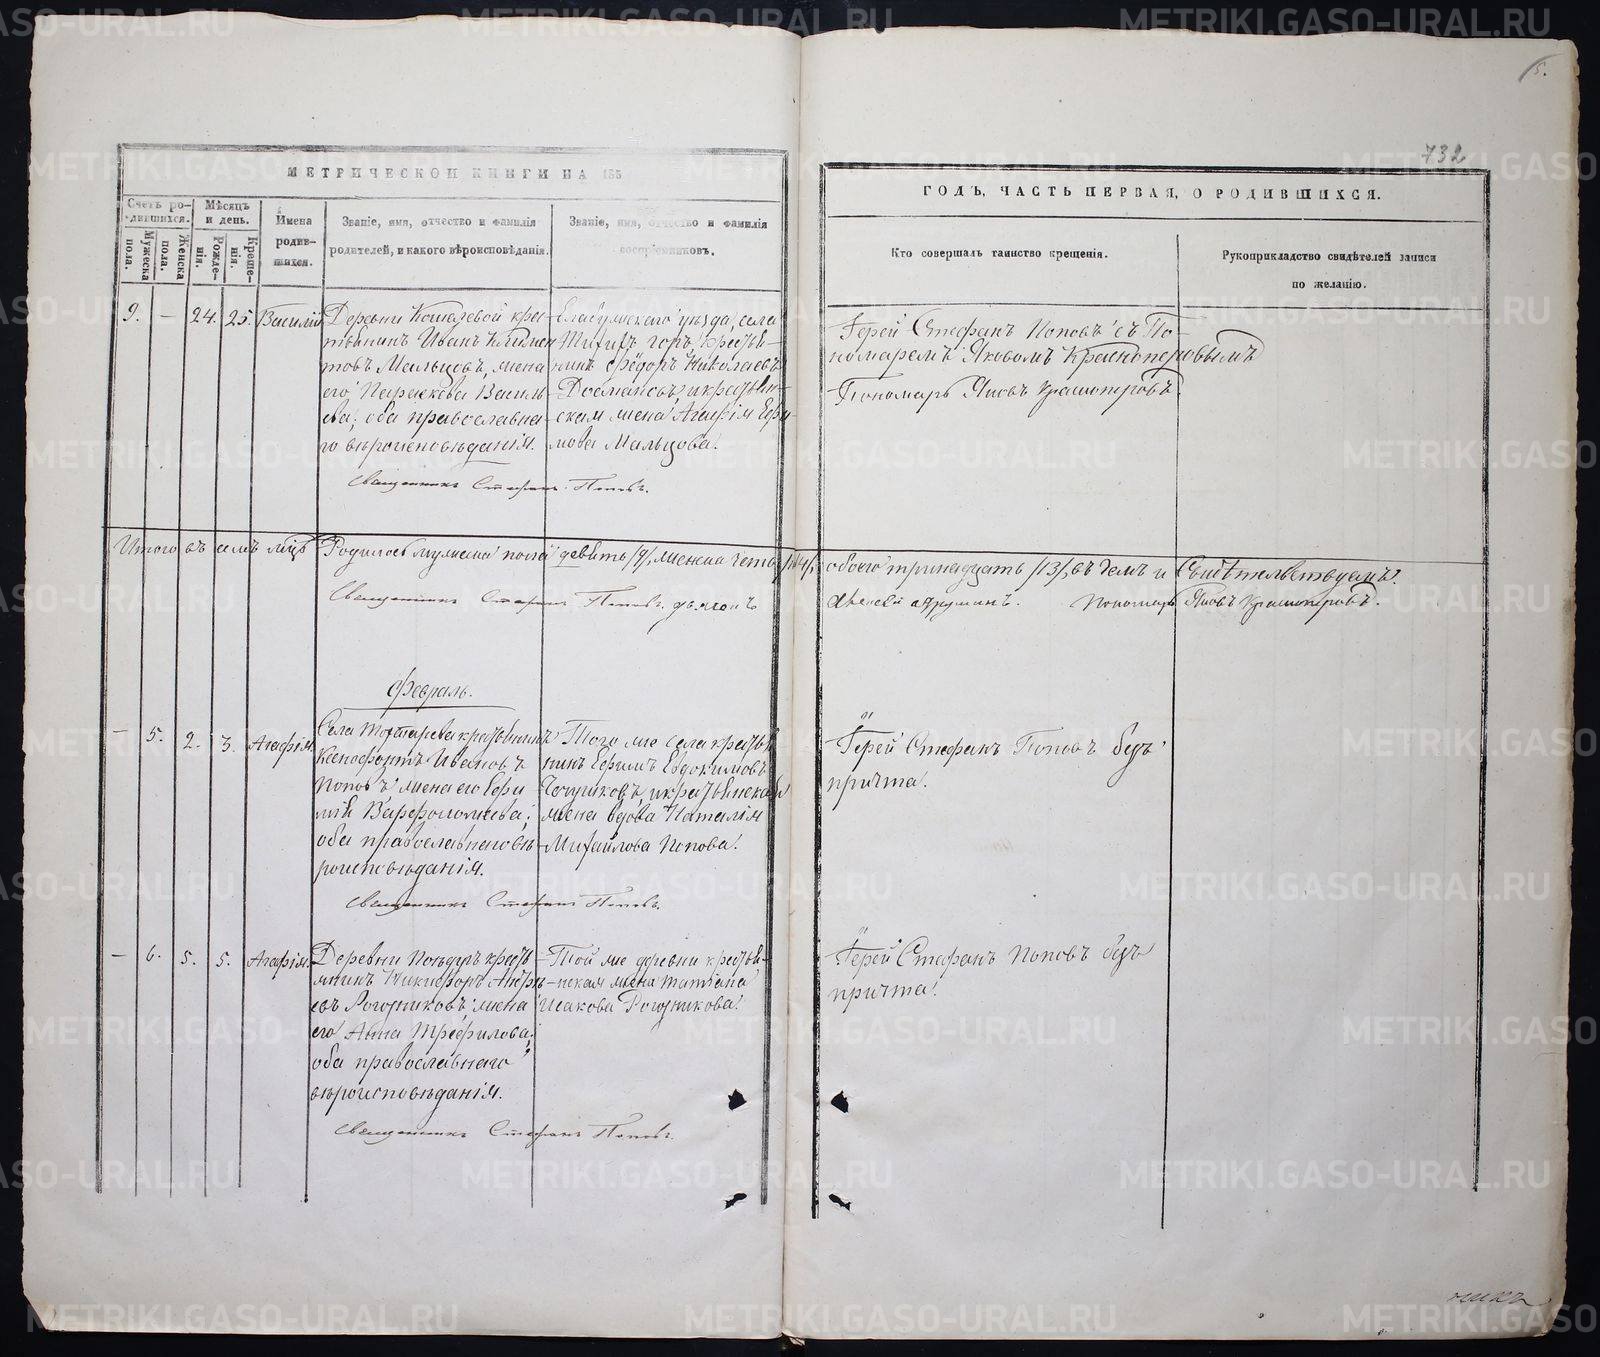 5.
732
МЕТРИЧЕСКОЙ КНИГИ НА 185
ГОДЪ, ЧАСТЬ ПЕРВАЯ, О РОДИВШИХСЯ.
Счетъ ро-
дившихся.
Мужеска
пола.
Женска
пола.
Мѣсяцъ
и день.
Рожде-
нія.
Креще-
нія.
Имена
родив-
шихся.
Званіе, имя, отчество и фамилія
родителей, и какого вѣроисповѣданія.
Званіе, имя, отчество и фамилія
воспріемниковъ.
Кто совершалъ таинство крещенія.
Рукоприкладство свидѣтелей записи
по желанію.
9.
—
24.
25.
Василій
Деревни Кошаевой крес-
тьянинъ Иванъ
Мальцовъ, жена
его Параскева Василь-
ева; оба православна-
го вѣроисповѣданія.
Священникъ Стефанъ Поповъ.
Елабужскаго уѣзда, села
горъ, крестья-
нинъ Ѳедоръ Николаевъ
и крестьян-
ская жена Агафія Ефи-
мова Мальцова.
Іерей Стефанъ Поповъ съ По-
номаремъ Яковомъ Красноперовымъ
Пономарь Яковъ Красноперовъ.
Итого въ семъ мѣсяцѣ Родилось мужеска пола девять /9/, женска четыре /4/,
обоего тринадцать /13/, въ чемъ и Свидѣтельствуемъ.
Священникъ Стефанъ Поповъ. Дьяконъ
Алексѣй Пономарь Яковъ Красноперовъ.
Февраль.
—
5.
2.
3.
Агафія.
Села крестьянинъ
Ксенофонтъ Ивановъ
Поповъ, жена его Евфи-
мія Варфоломеева;
оба православнаго вѣ-
роисповѣданія.
Священникъ Стефанъ Поповъ.
Того же села крестья-
нинъ Ефимъ Евдокимовъ
и крестьянская
жена вдова Наталія
Михайлова Попова.
Іерей Стефанъ Поповъ безъ
причта.
—
6.
5.
5.
Агафія.
Деревни кресть-
янинъ Никифоръ Андре-
евъ Рогожниковъ, жена
его Анна Трефилова;
оба православнаго
вѣроисповѣданія.
Священникъ Стефанъ Поповъ.
Той же деревни крестьян-
ская жена Татіана
Исакова Рогожникова.
Іерей Стефанъ Поповъ безъ
причта.
METRIKI.GASO-URAL.RU